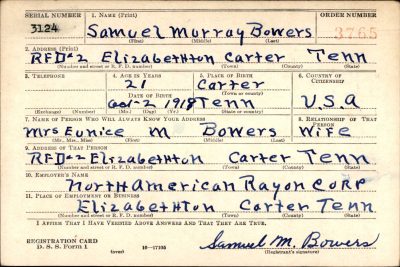 SERIAL NUMBER 1. NAME (Print) ORDER NUMBER
3124 Samuel Murray Bowers 3765
(First) (Middle) (Last)
2. ADDRESS (Print)
RFD#2 Elizabethton Carter Tenn
(Number and street or R. F. D. number) (Town) (County) (State)
3. TELEPHONE 4. AGE IN YEARS 5. PLACE OF BIRTH 6. COUNTRY OF CITIZENSHIP
21 Carter
DATE OF BIRTH (Town or county)
Oct-2 1919 Tenn U.S.A
(Exchange) (Number) (Mo.) (Day) (Yr.) (State or country)
7. NAME OF PERSON WHO WILL ALWAYS KNOW YOUR ADDRESS 8. RELATIONSHIP OF THAT PERSON
Mrs Eunice M Bowers Wife
(Mr., Mrs., Miss) (First) (Middle) (Last)
9. ADDRESS OF THAT PERSON
RFD#2 Elizabethton Carter Tenn
(Number and street or R. F. D. number) (Town) (County) (State)
10. EMPLOYER'S NAME
North American Rayon CORP
11. PLACE OF EMPLOYMENT OR BUSINESS
Elizabethton Carter Tenn
(Number and street or R. F. D. number) (Town) (County) (State)
I AFFIRM THAT I HAVE VERIFIED ABOVE ANSWERS AND THAT THEY ARE TRUE.
REGISTRATION CARD
D. S. S. Form 1 (over) 16-17105 Samuel M. Bowers
(Registrant's signature)